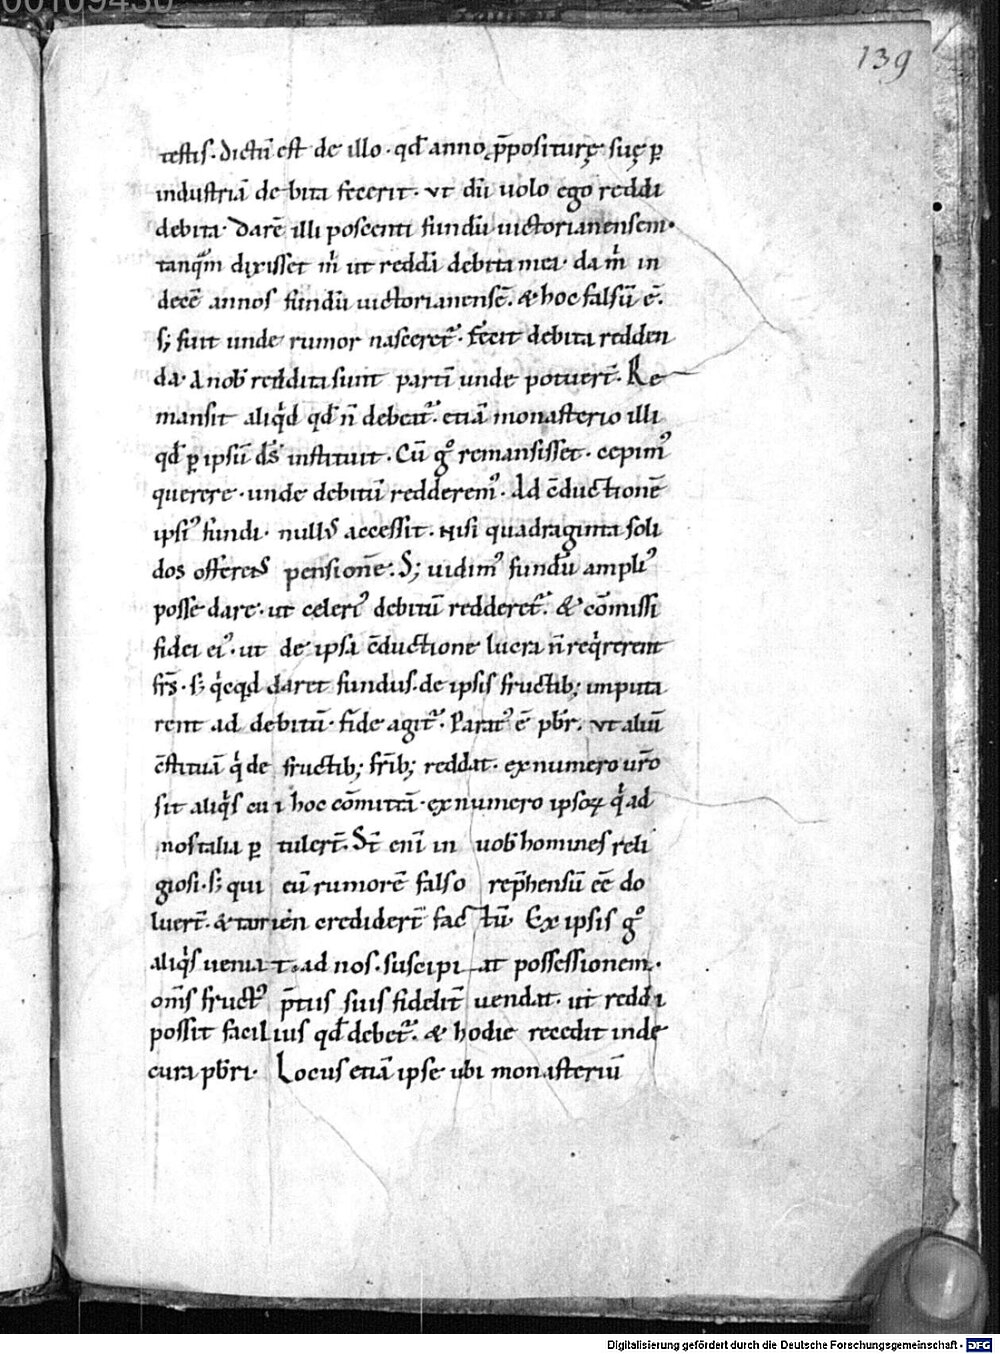 00109430
139
testis. dictū est de illo. qđ anno p̄posituręsuę p̲
industriā debita fecerit. ut dū uolo ego reddi
debita. darē illi poscenti fundū uictorianensem.
tanquā dixisset m̄ ut reddā debita mea. da m̄ in
decē annos fundū uictorianensē. & hoc falsū ē.
s; fuit unde rumor nasceret̄. fecit debita redden
da. A nob̄ reddita sunt partī unde potuer̄t. Re
mansit aliqd qđ n̄ debeat̄. etiā monasterio illi
qđ p̲ ipsū ds̄ instituit. Cū gͦ remansisset. cepimꝰ
querere. unde debitū redderemꝰ. Ad c̄ductionē
ipsiꝰ fundi. nullꝰ accessit. nisi quadraginta soli
dos offerēs pensionē. S; uidimꝰ fundū ampliꝰ
posse dare. ut celeriꝰ debitū redderet̄. & cōmissi
fidei eiꝰ. ut de ipsa c̄ductione lucra n̄ reqrerent
frs̄. s; qcqd daret fundus. de ipsis fructib; imputa
rent ad debitū. fide agit̄. Paratꝰ ē pb̄r. ut aliū
c̄stituā q de fructib; frīb; reddat. ex numero ur̄o
sit aliqs cui hoc cōmittā. ex numero ipsoꝝ q ad
nos talia p̲tulert̄. St̄ enī in uob̄ homines reli
giosi. s; qui eū rumorē falso rep̄hensū eē do
luert̄. & tam̄ credidert̄ factū. Ex ipsis gͦ
aliqs ueniat. ad nos. suscipiat possessionem.
om̄s fructꝰ p̄tiis suis fidelit̄ uendat. ut reddi
possit facilius qđ debet̄. & hodie recedit inde
cura pb̄ri. Locus etiā ipse ubi monasteriū
Digitalisierung gefördert durch die Deutsche Forschungsgemeinschaft - DFG